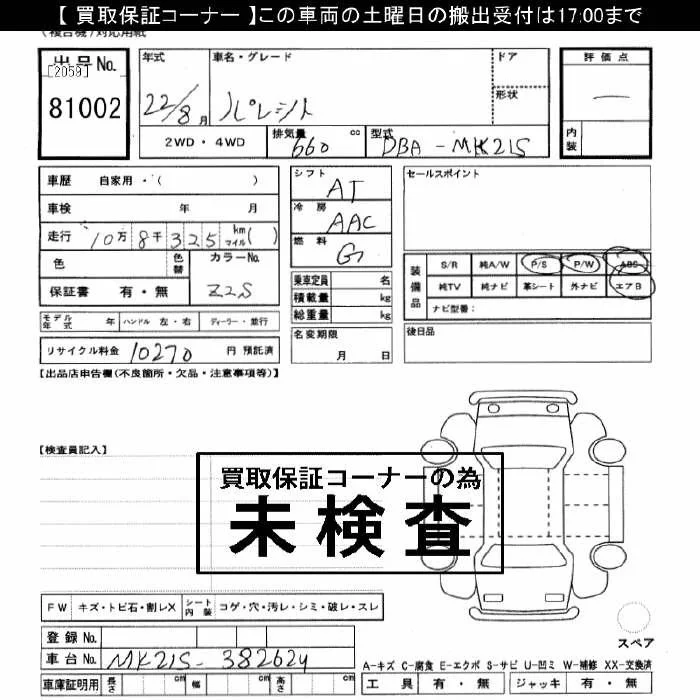 【 買取保証コーナー 】この車両の土曜日の搬出受付は17:00まで
(複合機)対応用紙
出品No.
[2059]
81002
年式
22/8 月
車名・グレード
パレット
ドア
形状
評価点
内装
2WD・4WD
排気量
660 cc
型式
DBA-MK21S
車歴 自家用・( )
車検 年 月
走行 10万 8千 325 km マイル ( )
色
色替
カラーNo.
Z2S
保証書 有・無
シフト
AT
冷房
AAC
燃料
G
乗車定員 名
積載量 kg
総重量 kg
セールスポイント
装備品
S/R 純A/W P/S P/W ABS
純TV 純ナビ 革シート 外ナビ エアB
ナビ型番:
モデル年式 年 ハンドル 左・右 ディーラー・並行
名変期限
月 日
後日品
リサイクル料金 10270 円 預託済
【出品店申告欄(不良箇所・欠品・注意事項等)】
【検査員記入】
買取保証コーナーの為
未検査
FW キズ・トビ石・割レX シート内装 コゲ・穴・汚レ・シミ・破レ・スレ
登録No.
車台No. MK21S-382624
スペア
A-キズ C-腐食 E-エクボ S-サビ U-凹ミ W-補修 XX-交換済
車庫証明用 長さ cm 幅 cm 高さ cm
工具 有・無 ジャッキ 有・無